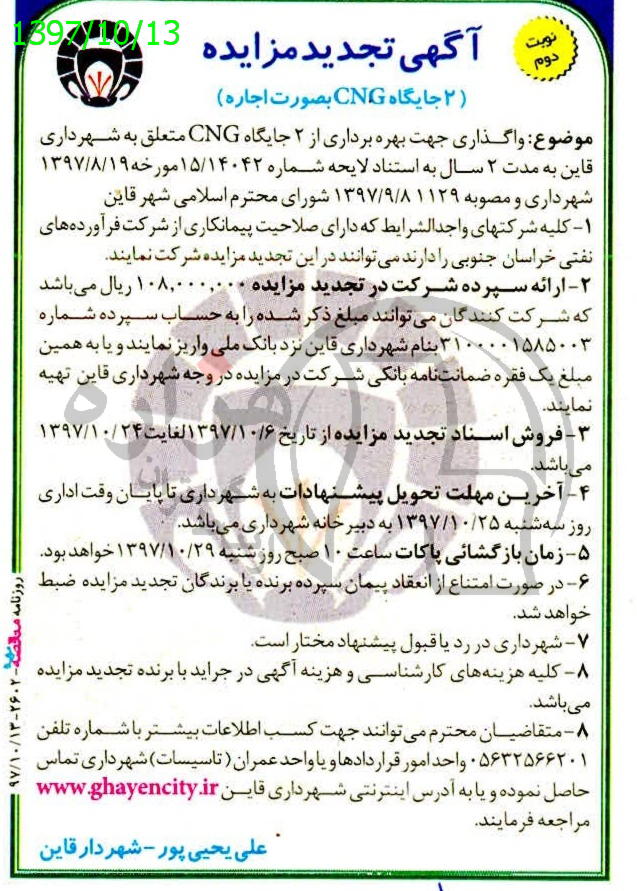 1397/10/13
نوبت
دوم
آگهی تجدید مزایده
(۲ جایگاه CNG بصورت اجاره)
موضوع: واگذاری جهت بهره برداری از ۲ جایگاه CNG متعلق به شهرداری
قاین به مدت ۲ سال به استناد لایحه شماره ۱۵/۱۴۰۴۲ مورخه ۱۳۹۷/۸/۱۹
شهرداری و مصوبه ۱۱۲۹ ۱۳۹۷/۹/۸ شورای محترم اسلامی شهر قاین
۱- کلیه شرکتهای واجدالشرایط که دارای صلاحیت پیمانکاری از شرکت فرآورده‌های
نفتی خراسان جنوبی را دارند می‌توانند در این تجدید مزایده شرکت نمایند.
۲- ارائه سپرده شرکت در تجدید مزایده ۱۰۸,۰۰۰,۰۰۰ ریال می‌باشد
که شرکت کنندگان می‌توانند مبلغ ذکر شده را به حساب سپرده شماره
۳۱۰۰۰۰۱۵۸۵۰۰۳ بنام شهرداری قاین نزد بانک ملی واریز نمایند و یا به همین
مبلغ یک فقره ضمانت‌نامه بانکی شرکت در مزایده در وجه شهرداری قاین تهیه
نمایند.
۳- فروش اسناد تجدید مزایده از تاریخ ۱۳۹۷/۱۰/۶ لغایت ۱۳۹۷/۱۰/۲۴
می‌باشد.
۴- آخرین مهلت تحویل پیشنهادات به شهرداری تا پایان وقت اداری
روز سه‌شنبه ۱۳۹۷/۱۰/۲۵ به دبیرخانه شهرداری می‌باشد.
۵- زمان بازگشائی پاکات ساعت ۱۰ صبح روز شنبه ۱۳۹۷/۱۰/۲۹ خواهد بود.
۶- در صورت امتناع از انعقاد پیمان سپرده برنده یا برندگان تجدید مزایده ضبط
خواهد شد.
۷- شهرداری در رد یا قبول پیشنهاد مختار است.
۸- کلیه هزینه‌های کارشناسی و هزینه آگهی در جراید با برنده تجدید مزایده
می‌باشد.
۸- متقاضیان محترم می‌توانند جهت کسب اطلاعات بیشتر با شماره تلفن
۰۵۶۳۲۵۶۶۲۰۱ واحد امور قراردادها و یا واحد عمران (تاسیسات) شهرداری تماس
حاصل نموده و یا به آدرس اینترنتی شهرداری قاین www.ghayencity.ir
مراجعه فرمایند.
علی یحیی پور - شهردار قاین
روزنامه مناقصه - ۲۶۰۲ - ۹۷/۱۰/۱۳
هزاره